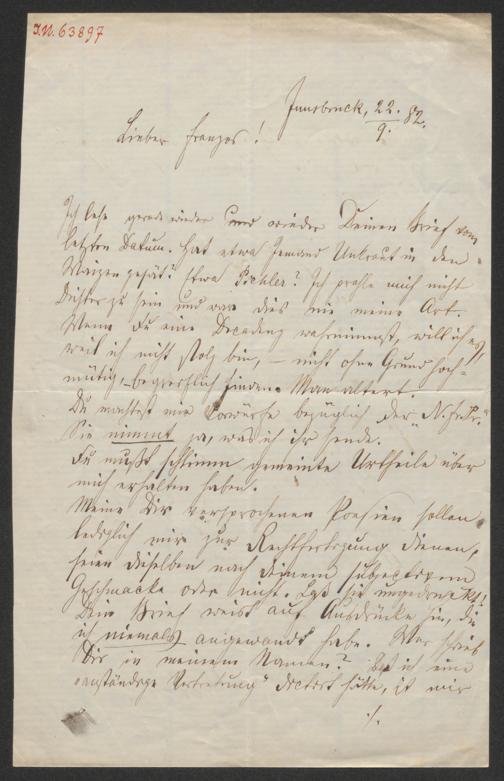 I.N. 63897
Innsbruck, 22./9. 82.
Lieber Franzos!
Ich lese gerade wieder und wieder Deinen Brief vom
letzten Datum. Hat etwa Jemand Unkraut in den
Waizen gesät? Etwa Pichler? Ich prahle mich nicht
Dichter zu sein und war dies nie meine Art.
Wenn Du eine Decadenz wahrnimmst, will ich es,
weil ich nicht stolz bin, – nicht ohne Grund hoch-
mütig, – begreiflich finden. Man altert.
Du machtest mir Vorwürfe bezüglich der „N. fr. Pr."
Sie nimmt ja, was ich ihr sende.
Du mußt schlimm gemeinte Urtheile über
mich erhalten haben.
Meine Dir versprochenen Poesien sollen
lediglich mir zur Rechtfertigung dienen,
seien dieselben nach Deinem subjectiven
Geschmacke oder nicht. Laß sie ungedruckt!
Dein Brief weist auf Ausdrücke hin, die
ich niemals angewandt habe. Wer schrieb
Dir in meinem Namen? Daß ich eine
„anständige Vertretung" hätte, ist mir
./.